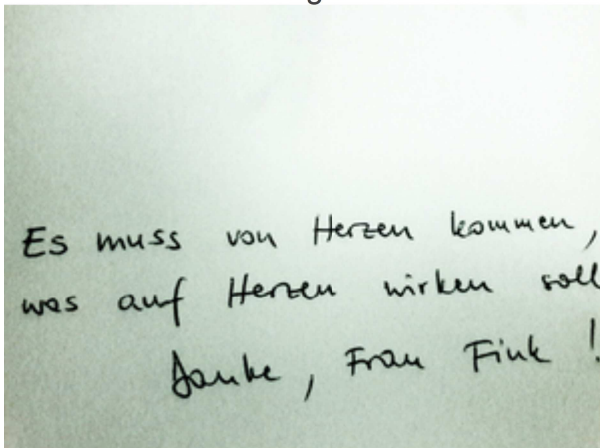 Es muss von Herzen kommen,
was auf Herzen wirken soll
Danke, Frau Fink !